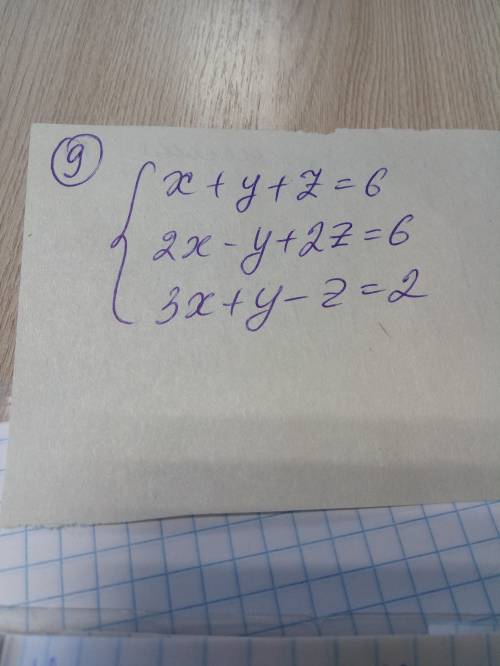 9
x + y + z = 6
2x - y + 2z = 6
3x + y - z = 2